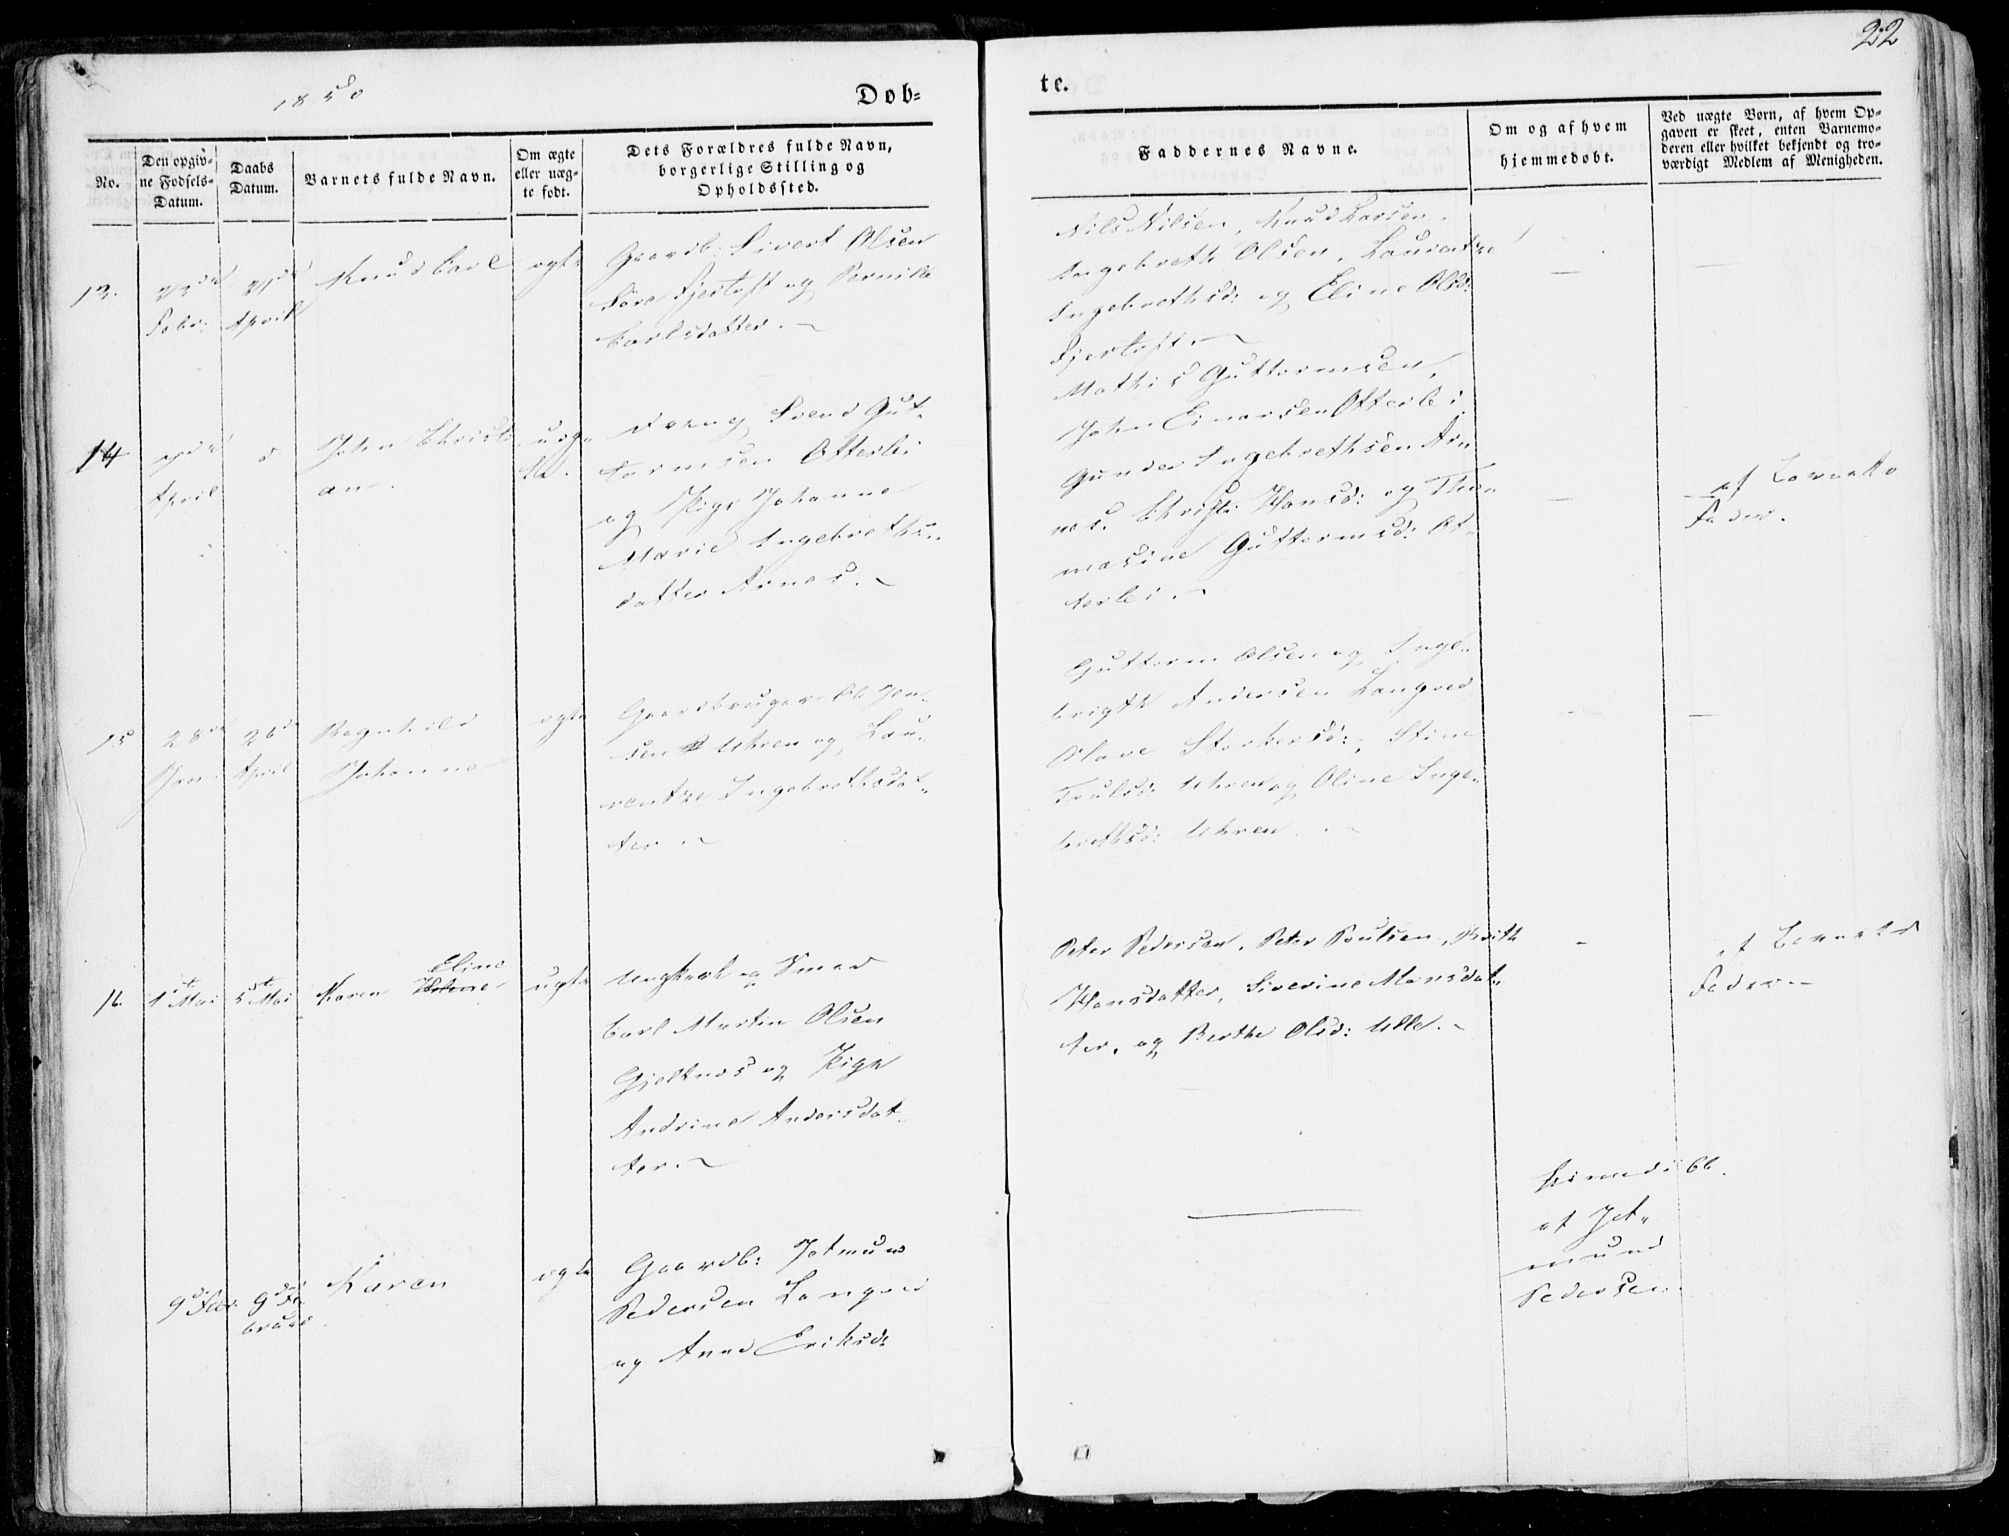 22
1850
Döb=
te.
No.
Den opgiv-
ne Födsels-
Datum.
Daabs
Datum.
Barnets fulde Navn.
Om ægte
eller uæg-
te födt.
Dets Forældres fulde Navn,
borgerlige Stilling og
Opholdssted.
Faddernes Navne.
Om og af hvem
hjemmedöbt.
Ved uægte Börn, af hvem Op-
gaven er skeet, enten Barnemo-
deren eller hvilket bekjendt og tro-
værdigt Medlem af Menigheden.
13.
Febr:
April
Knud Carl
ægte
Gaardb: Sivert Olsen
Söre Fjertoft og Pernille
Carlsdatter.
Nils Nilsen, Knud Larsen.
Ingebreth Olsen, Laurentze
Ingebrethsd: og Eline Olsd:
Fjertoft.
14
April
John Christi
an.
uæg-
te.
Dreng Svend Gut-
tormsen Otterlei
og Pige Johanne
Marie Ingebreths-
datter Arnes.
Mathis Guttormsen,
John Einarsen Otterlei
Gunder Ingebrethsen Ar-
nes. Christi Hansd: og Tho-
masine Guttormsd: Ot-
terlei.
af Barnets
Fader.
15
28de
Jan:
26d
April
Ragnhild
Johanne
ægte
Gaardbruger Ole Jen-
sen Uhren og Lau-
rentze Ingebrethsdat-
ter
Guttorm Olsen og Inge-
brigth Andersen Langved
Olave Storkersd:, Stine
Trulsd: Uhren og Oline Inge-
brethsd: Uhren.
16.
1st Mai
5te Mai
Karen Eline
uægte
Ungkarl og Smed
Carl Martin Olsen
Gjeltnes og Pige
Andrine Andersdat-
ter.
Peter Pedersen, Peter Poulsen, Brith
Hansdatter, Siverine Monsdat-
ter, og Berthe Olsd: Ulle.
af Barnets
Fader
9de Febr:
9de Fe-
bruar
Karen
ægte
Gaardb: Jetmund
Pedersen Langved
og Anne Eriksd:
af Jet-
mund
Pedersen.